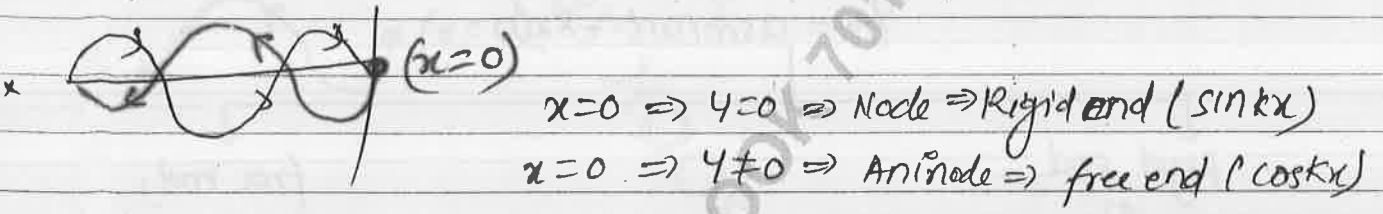 (x=0)
x
x=0 => y=0 => Node => Rigid end (sinkx)
x=0 => y≠0 => Aninode => free end (coskx)
OOK 701